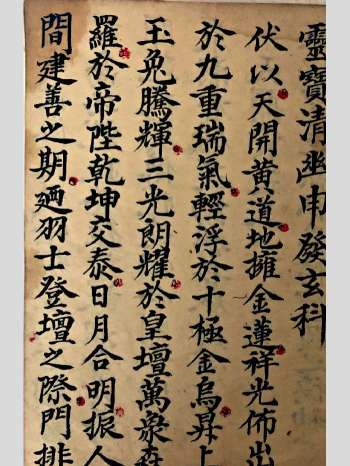 靈寶清幽申發玄科
伏以天開黃道地擁金蓮祥光佈出
於九重瑞氣輕浮於十極金烏昇上
玉兔騰輝三光朗耀於皇壇萬象森
羅於帝陛乾坤交泰日月合明振人
間建善之期廼羽士登壇之際門排